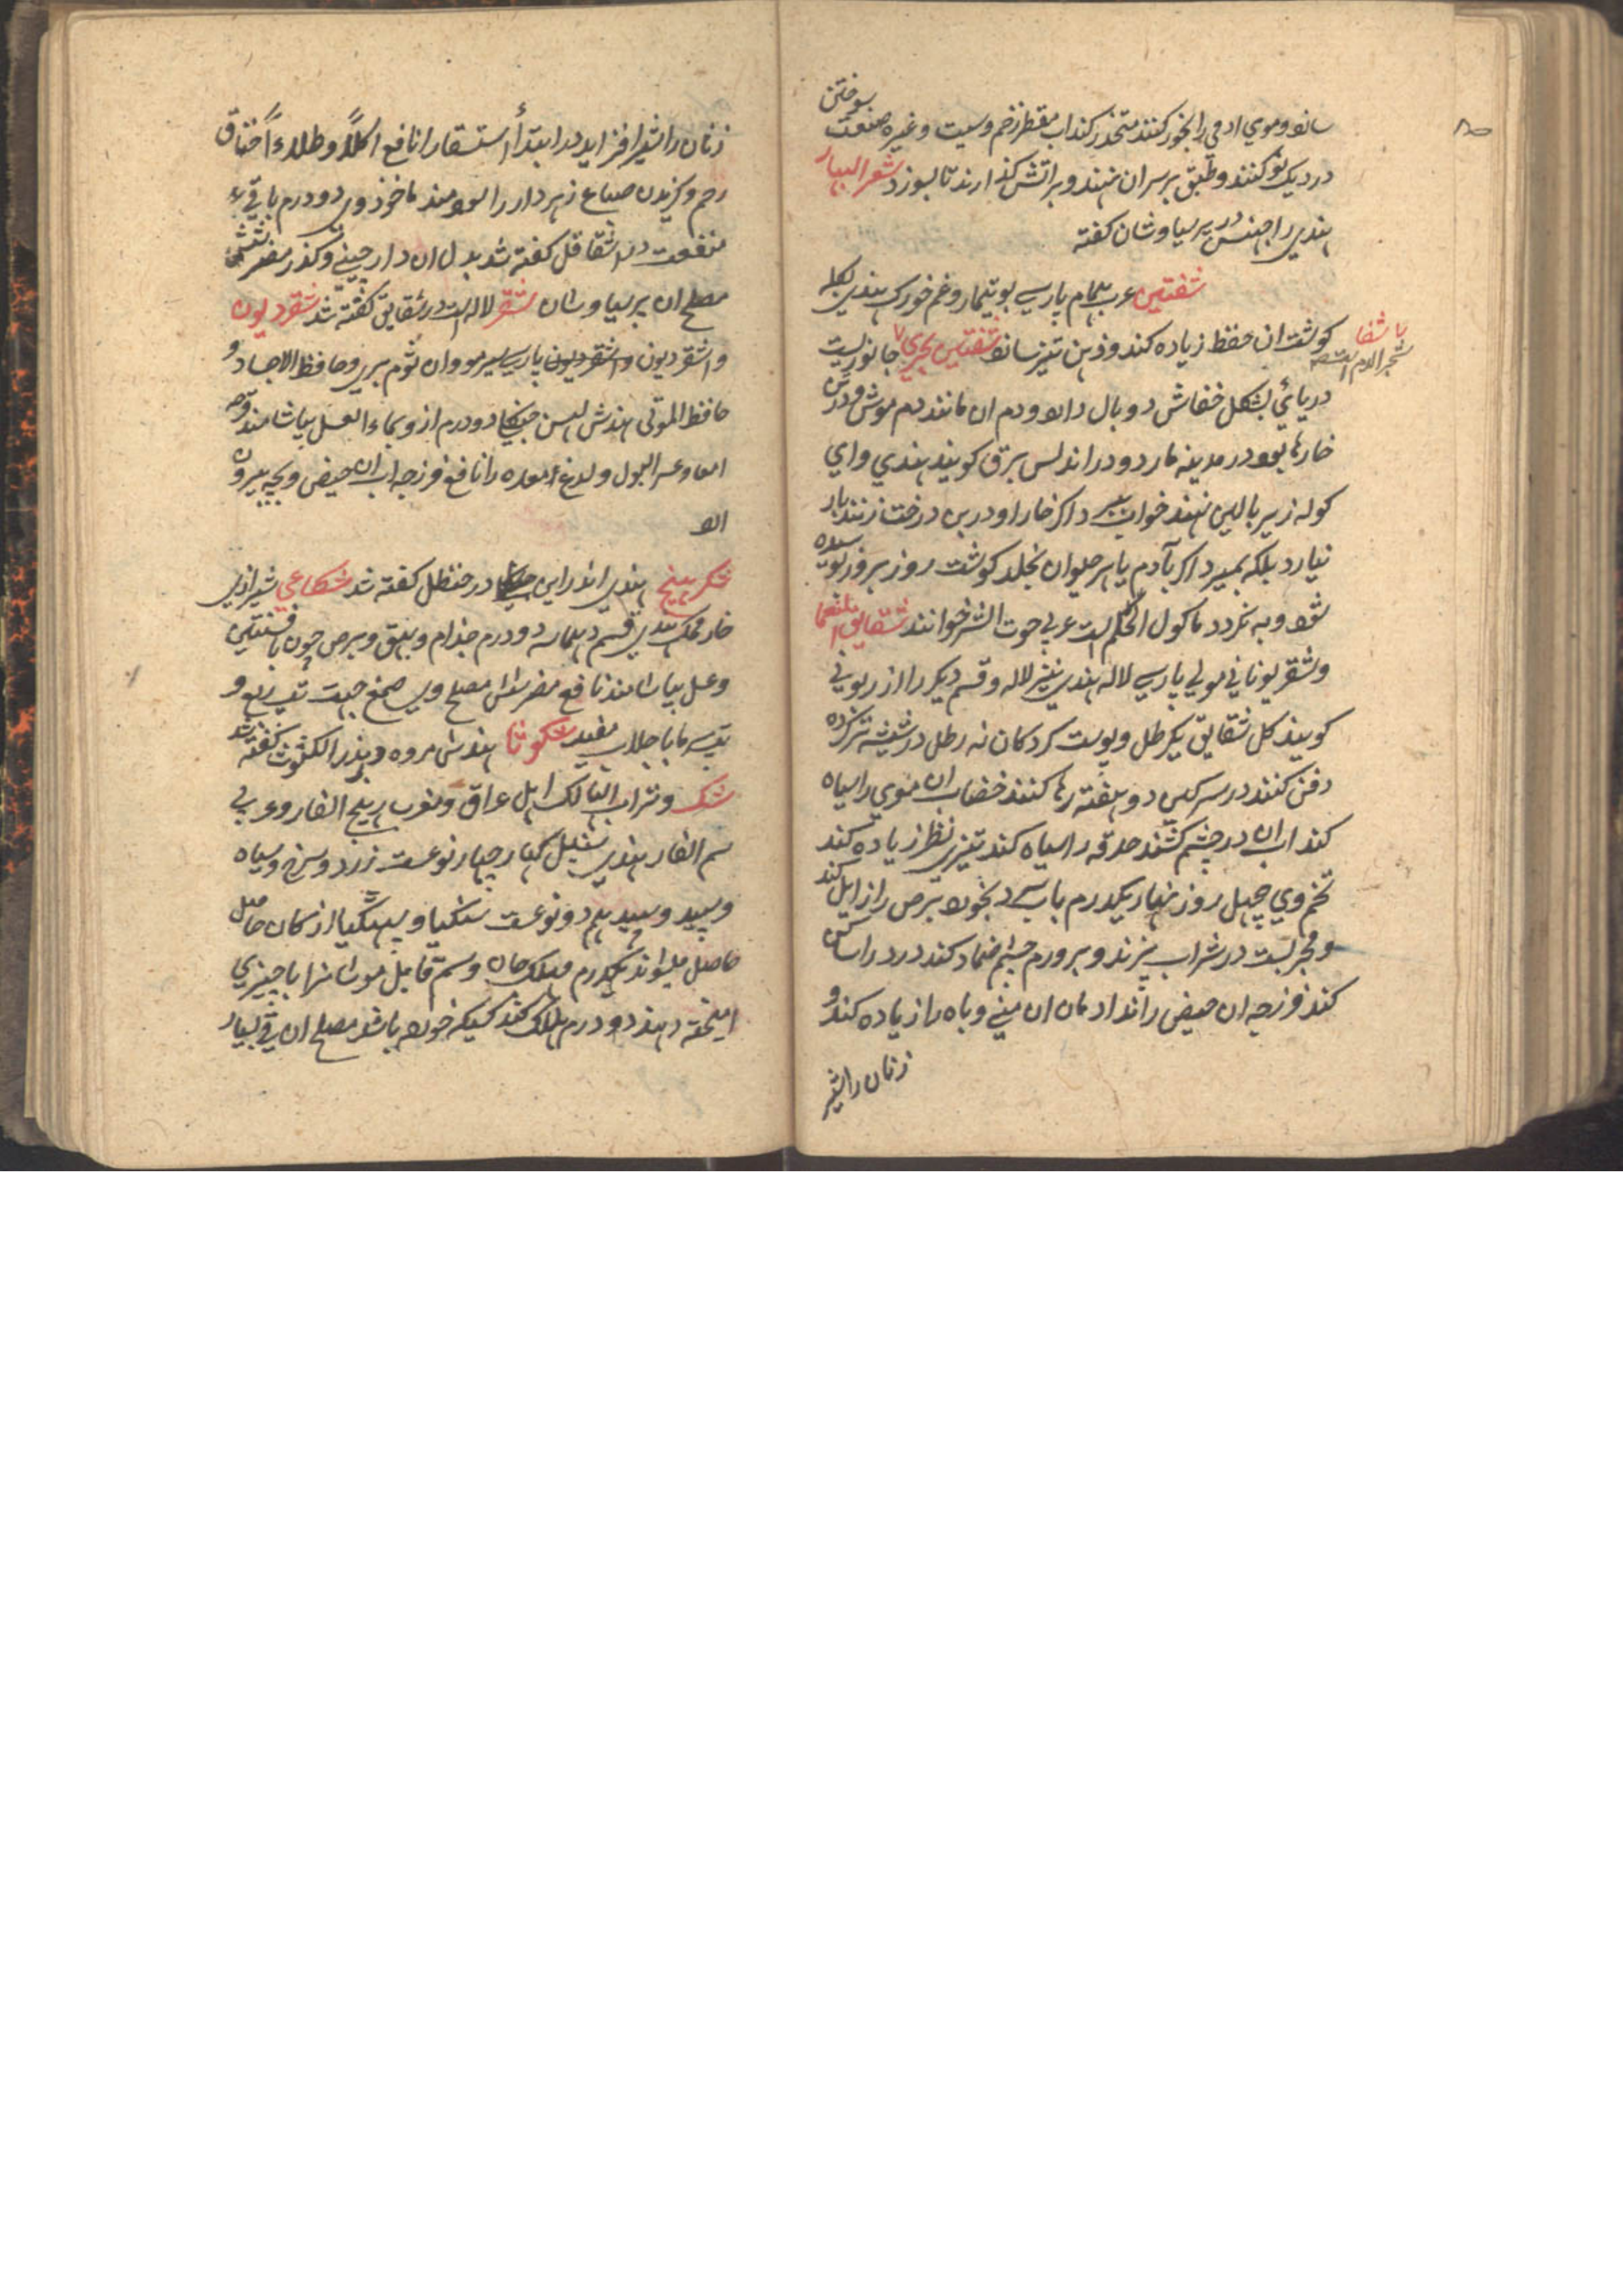 سازد و موي ادمي را بخور کنند متحذر کند اب مقطر زخم و سیت و غیره صنعت سوختن
در دیک نو کنند و طبق بر سر ان نهند و بر اتش کذارند تا بسوزد شعر الببار
هندي را جنس در پر سیاوشان کفته
شفتین عرب یمام پارسي بوتیمار و غم خورک هندي بکله
کوشت ان حفظ زیاده کند و ذهن تیز سازد شفتین بحري جانوریست
دریائي بشکل خفاش دو بال دارد و دم ان مانند دم موش و درش
خارها بود در مدینه مارد و در اندلس برق کویند هندي واي
کوله زیر بالین نهند خواب دا کر خار او در بن درخت زنند بار
نیارد بلکه بمیرد اکر بآدم یا هر حیوان بخلد کوشت روز بروز بوسیده
شود و به نکردد ماکول اللحم است عربي حوت الشر خوانند شقایق النعما
و شقر یوناني مولي پارسي لاله هندي نیز لاله و قسم دیکر را ازریوني
کویند کل شقایق یکرطل و پوست کردکان نه رطل در شیشه تر کرده
دفن کنند در سرکین دو هفته رها کنند خضاب ان موي را سیاه
کند اب ان در چشم کشند حدقه را سیاه کند تیزي نظر زیاده کند
تخم وي چهل روز نهار یکدرم باب سرد بخورد برص را زایل کند
و مجربست در شراب پزند و بر ورم چشم ضماد کند درد را ساکن
کند فرزجه ان حیض راند ادمان ان مني و باه را زیاده کند و
زنان را شیر
یا شفا
شجر الدم است
زنان را شیر افزاید در ابتدأ استسقا را نافع اکلاً و طلاءً خناق
رحم و کزیدن صباع زهردار را سود مند ماخوذ وي دو درم باقي
منفعت در اشقاقل کفته شد بدل ان دارچیني و کذر مضر شش
مصلح ان پر سیاوشان شقر لاله است در شقایق کفته شد شقردیون
و اشقردیون و اشقردیون پارسي سیر مو و ان ثوم بري و حافظ الاجساد و
حافظ الموتي هندش لهسن جنکلي دو درم ازو بماء العسل بیاشامند قرحه
امعا و عسر البول و لدغ امعده را نافع فرزجه اب ان حیض و بچه بیرون
ارد
شکر بینج هندي اندراین در حنظل کفته شد شکاعي شیرازي
خار فمک هندي قسم دهماسه دو درم جذام و بهق و برص چون بافسنتین
و عسل بیاشامند نافع مضر شش مصلح وي صمغ جهت تب ربع و
تبهاي با جلاب مفید شکوثا هندش مروه و بذر الکشوث کفته شد
شک و تراب الهالک اهل عراق و مغرب رهج الفار و عربي
سم الفار هندي سنبل کهار چهار نوعست زرد و سرخ و سیاه
و سپید و سپید هم دو نوعست سنکیا و پهتکیا از کان حاصل
حاصل میشواند یکدرم مهلک جان و سم قاتل موشانرا با چیزي
امیخته دهند دو درم هلاک کند کسیکه خورد باشد مصلح ان قي بسیار